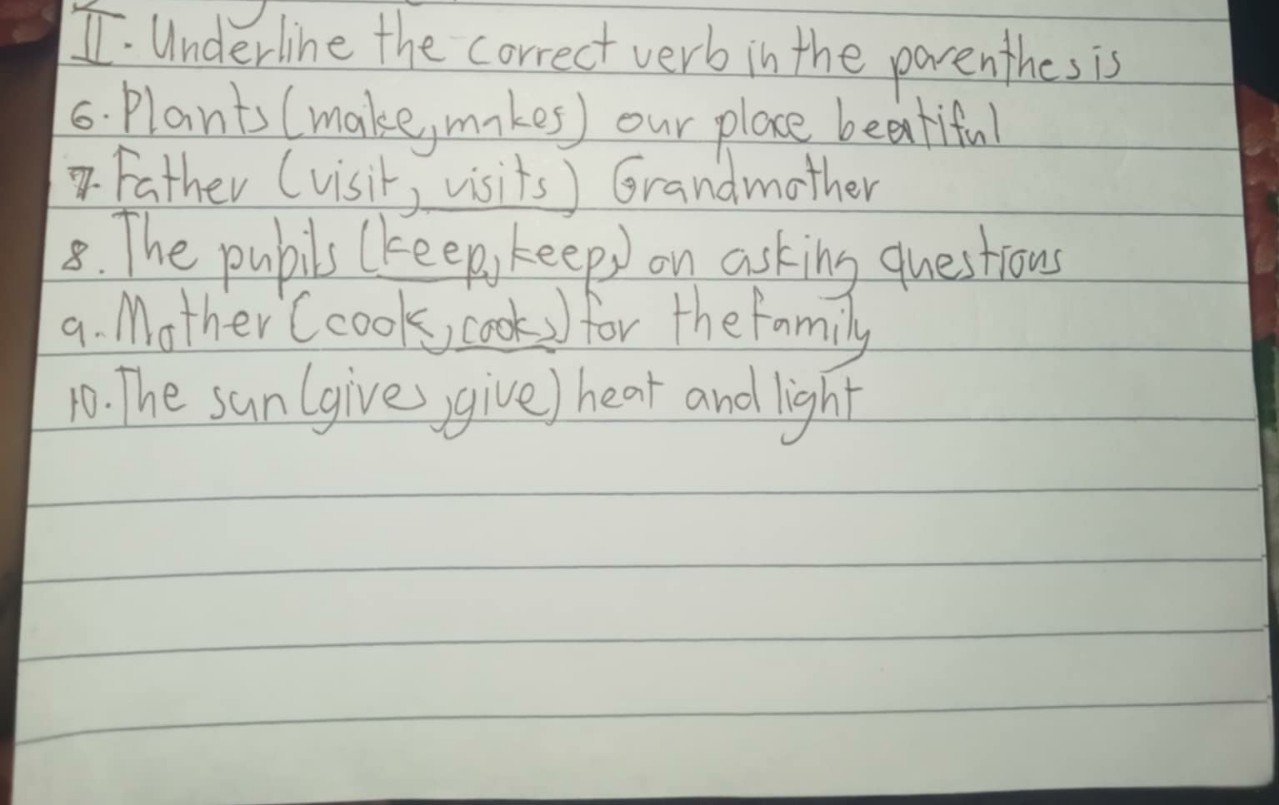 II. Underline the correct verb in the parenthesis
6. Plants (make, makes) our place beatiful
7. Father (visit, visits) Grandmother
8. The pupils (keep, keeps) on asking questions
9. Mother (cook, cooks) for the family
10. The sun (gives, give) heat and light